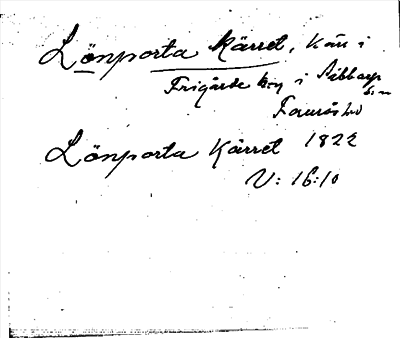 Lönporta Kärret, Kärr i
Frigärde by i Sibbarp
sn
Lönporta Kärret 1822
V: 16:10